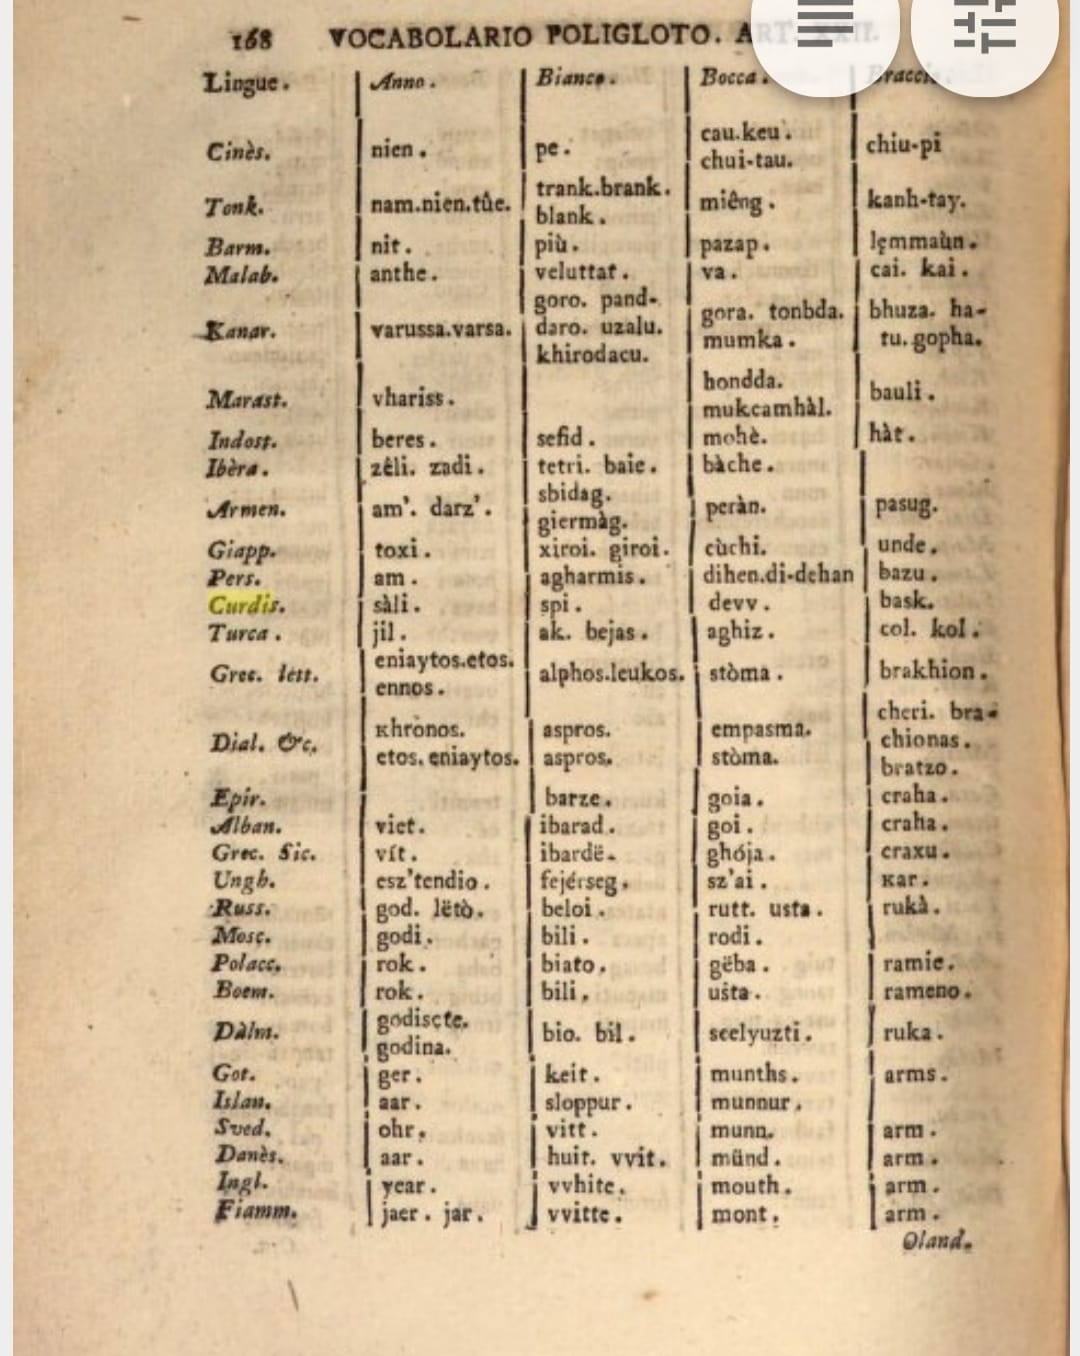 168 VOCABOLARIO POLIGLOTO. ART. XXII.
Lingue. Anno. Bianco. Bocca. Braccio.
Cinès. nien. pe. cau.keu. chui-tau. chiu-pi
Tonk. nam.nien.tûe. trank.brank. blank. miêng. kanh-tay.
Barm. nit. più. pazap. lęmmaùn.
Malab. anthe. veluttat. va. cai. kai.
Kanar. varussa.varsa. goro. pand-daro. uzalu. khirodacu. gora. tonbda. mumka. bhuza. ha-tu.gopha.
Marast. vhariss. hondda. mukcamhàl. bauli.
Indost. beres. sefid. mohè. hàt.
Ibèra. zêli. zadi. tetri. baie. bàche.
Armen. am'. darz'. sbidag. giermàg. peràn. pasug.
Giapp. toxi. xiroi. giroi. cùchi. unde.
Pers. am. agharmis. dihen.di-dehan bazu.
Curdis. sàli. spi. devv. bask.
Turca. jil. ak. bejas. aghiz. col. kol.
Grec. lett. eniaytos.etos. ennos. alphos.leukos. stòma. brakhion.
Dial. &c. κhrònos. etos. eniaytos. aspros. aspros. empasma. stòma. cheri. bra-chionas. bratzo.
Epir. barze. goia. craha.
Alban. viet. ibarad. goi. craha.
Grec. Sic. vít. ibardë. ghója. craxu.
Ungh. esz'tendio. fejérseg. sz'ai. κar.
Russ. god. lëtò. beloi. rutt. usta. rukà.
Mosc. godi. bili. rodi.
Polacc. rok. biato. gëba. ramie.
Boem. rok. bili. usta. rameno.
Dàlm. godisçte. godina. bio. bil. seelyuzti. ruka.
Got. ger. keit. munths. arms.
Islan. aar. sloppur. munnur.
Sved. ohr. vitt. munn. arm.
Danès. aar. huit. vvit. münd. arm.
Ingl. year. vvhite. mouth. arm.
Fiamm. jaer. jar. vvitte. mont. arm.
Oland.